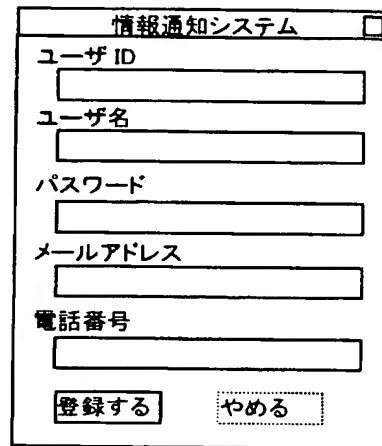 情報通知システム
ユーザ ID
ユーザ名
パスワード
メールアドレス
電話番号
登録する やめる